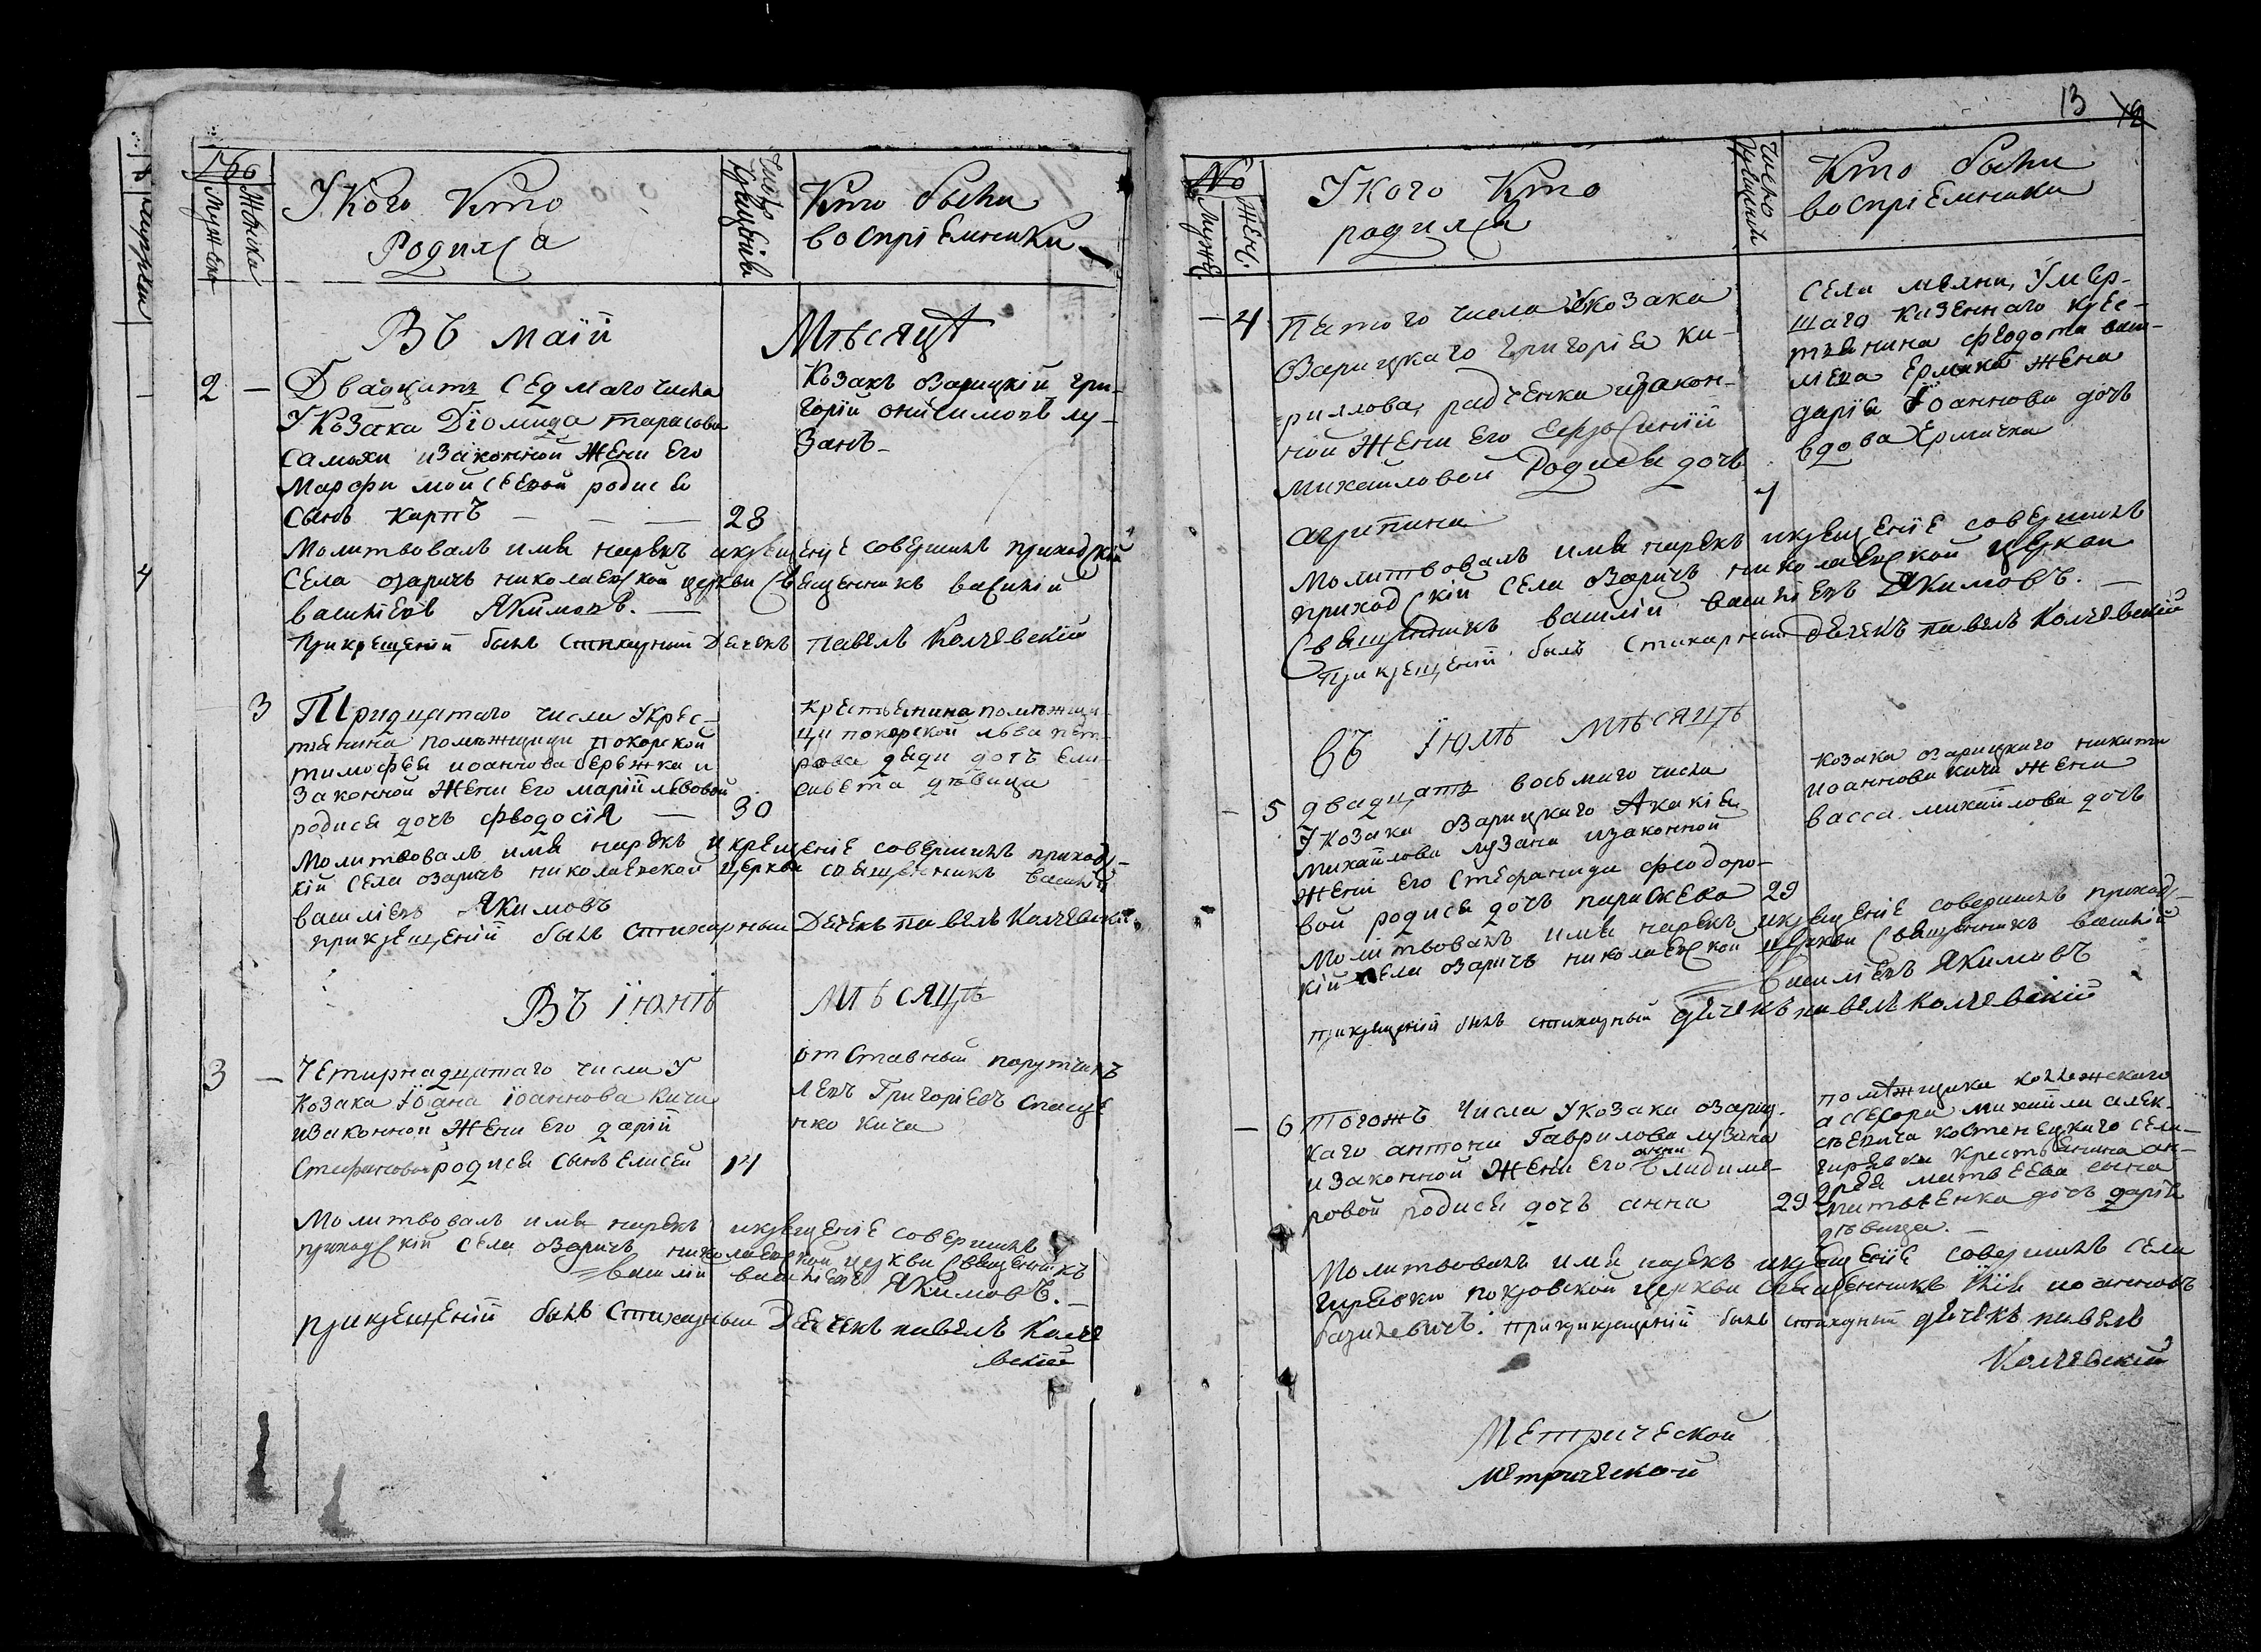 №
Мужеска
Женска
У Кого Кто
Родился
Число
Крещенія
Кто были
воспріемники
Въ маiй Мѣсяцѣ
2 — Двадцать седмаго числа
У Козака Діомида тарасова
и законной жени его
Марфи мойсеевой родися
Сынъ карпъ — — — 28
Козакъ озарицкій гри-
горій онисимовъ лу-
занъ
Молитвовалъ имя нарекъ и крещеніе совершилъ приходскій
Села озаричъ николаевской церкви священникъ василій
василіевъ Якимовъ. —
При крещеній былъ стихарный Дячекъ павелъ Колчевскій
3 Тридцатого числа У крес-
тянина помѣщици покорской
тимофея иоаннова бережка и
законной жени его маріи львовой
родися дочь феодосія — 30
крестьянина помѣщи-
ци покорской льва пет-
рова деди дочъ ели-
савета дѣвица
Молитвовалъ имя нарекъ и крещеніе совершилъ приходс-
кій села озаричъ николаевской церкви священникъ василій
василіевъ Якимовъ
при крещеній былъ стихарный Дячекъ павелъ Колчевскій
Въ іюнѣ мѣсяцѣ
3 — Четирнадцатаго числа У
Козака Іоана іоаннова Кичи
и законной жени его даріи
Стефановой родися сынъ елисей 14
отставный порутчикъ
левъ Григоріевъ
Кича
Молитвовалъ имя нарекъ и крещеніе совершилъ
приходскій села озаричъ николаевской церкви священникъ
василій василіевъ Якимовъ. —
при крещеній былъ Стихарный Дячекъ павелъ Колче
вскій
13
№
Мужес.
Женс.
У кого Кто
родился
Число
крещенія
Кто были
воспріемники
— 4 Пятого числа У козака
Озарицкаго григорія ки-
риллова, радченка и закон-
ной жени его Ефросиніи
михайловой Родися дочъ
агрипина 7
села мляни, Умер-
шаго казеннаго крес-
тянина феодота васи-
лева Ермака жена
дарія Іоаннова дочъ
вдова Ермачка
Молитвовалъ имя нарекъ и крещеніе совершилъ
приходскій села озаричъ николаевской церкви
Священникъ василій василіевъ Якимовъ. —
При крещеній былъ стихарный Дячекъ павелъ Колчевскій
въ Іюлѣ мѣсяцѣ
— 5 двадцать восьмаго числа
У козака озарицкаго Акакія
михайлова лузана и законной
жени его Стефаниди феодоро-
вой родися дочъ параскева 29
козака озарицкаго никити
иоаннова кичи жена
васса михайлова дочъ
Молитвовалъ имя нарекъ и крещеніе совершилъ приходс-
кій села озаричъ николаевской церкви священникъ василій
василіевъ Якимовъ
при крещеній былъ стихарный дячекъ павелъ колчевскій
— 6 Тогожъ Числа У козака озариц-
каго антона Гаврилова лузана
и законной жени его анни владиме-
ровой родися дочъ анна 29
помѣщика коллежскаго
асесора михайла алек-
сѣевича костенецкаго села
гирявки крестьянина ан-
дрея матвеева сына
матвѣенка дочъ дарія
дѣвица. —
Молитвовалъ имя нарекъ и крещеніе совершилъ села
гирявки покровской церкви священникъ илія иоанновъ
базилевичъ. при крещеній былъ стихарный дячекъ павелъ
Колчевскій
Метрической
метрической